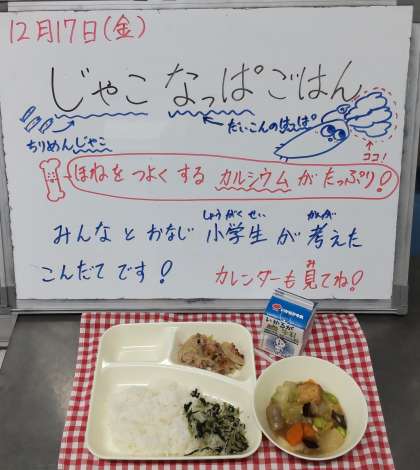 12月17日(金)
じゃこ なっぱごはん
ちりめんじゃこ
だいこんのはっぱ
ココ!
ほねをつよくする カルシウムが たっぷり!
しょうがくせい かんが
みんなと おなじ 小学生が 考えた
こんだてです!
み
カレンダーも見てね!